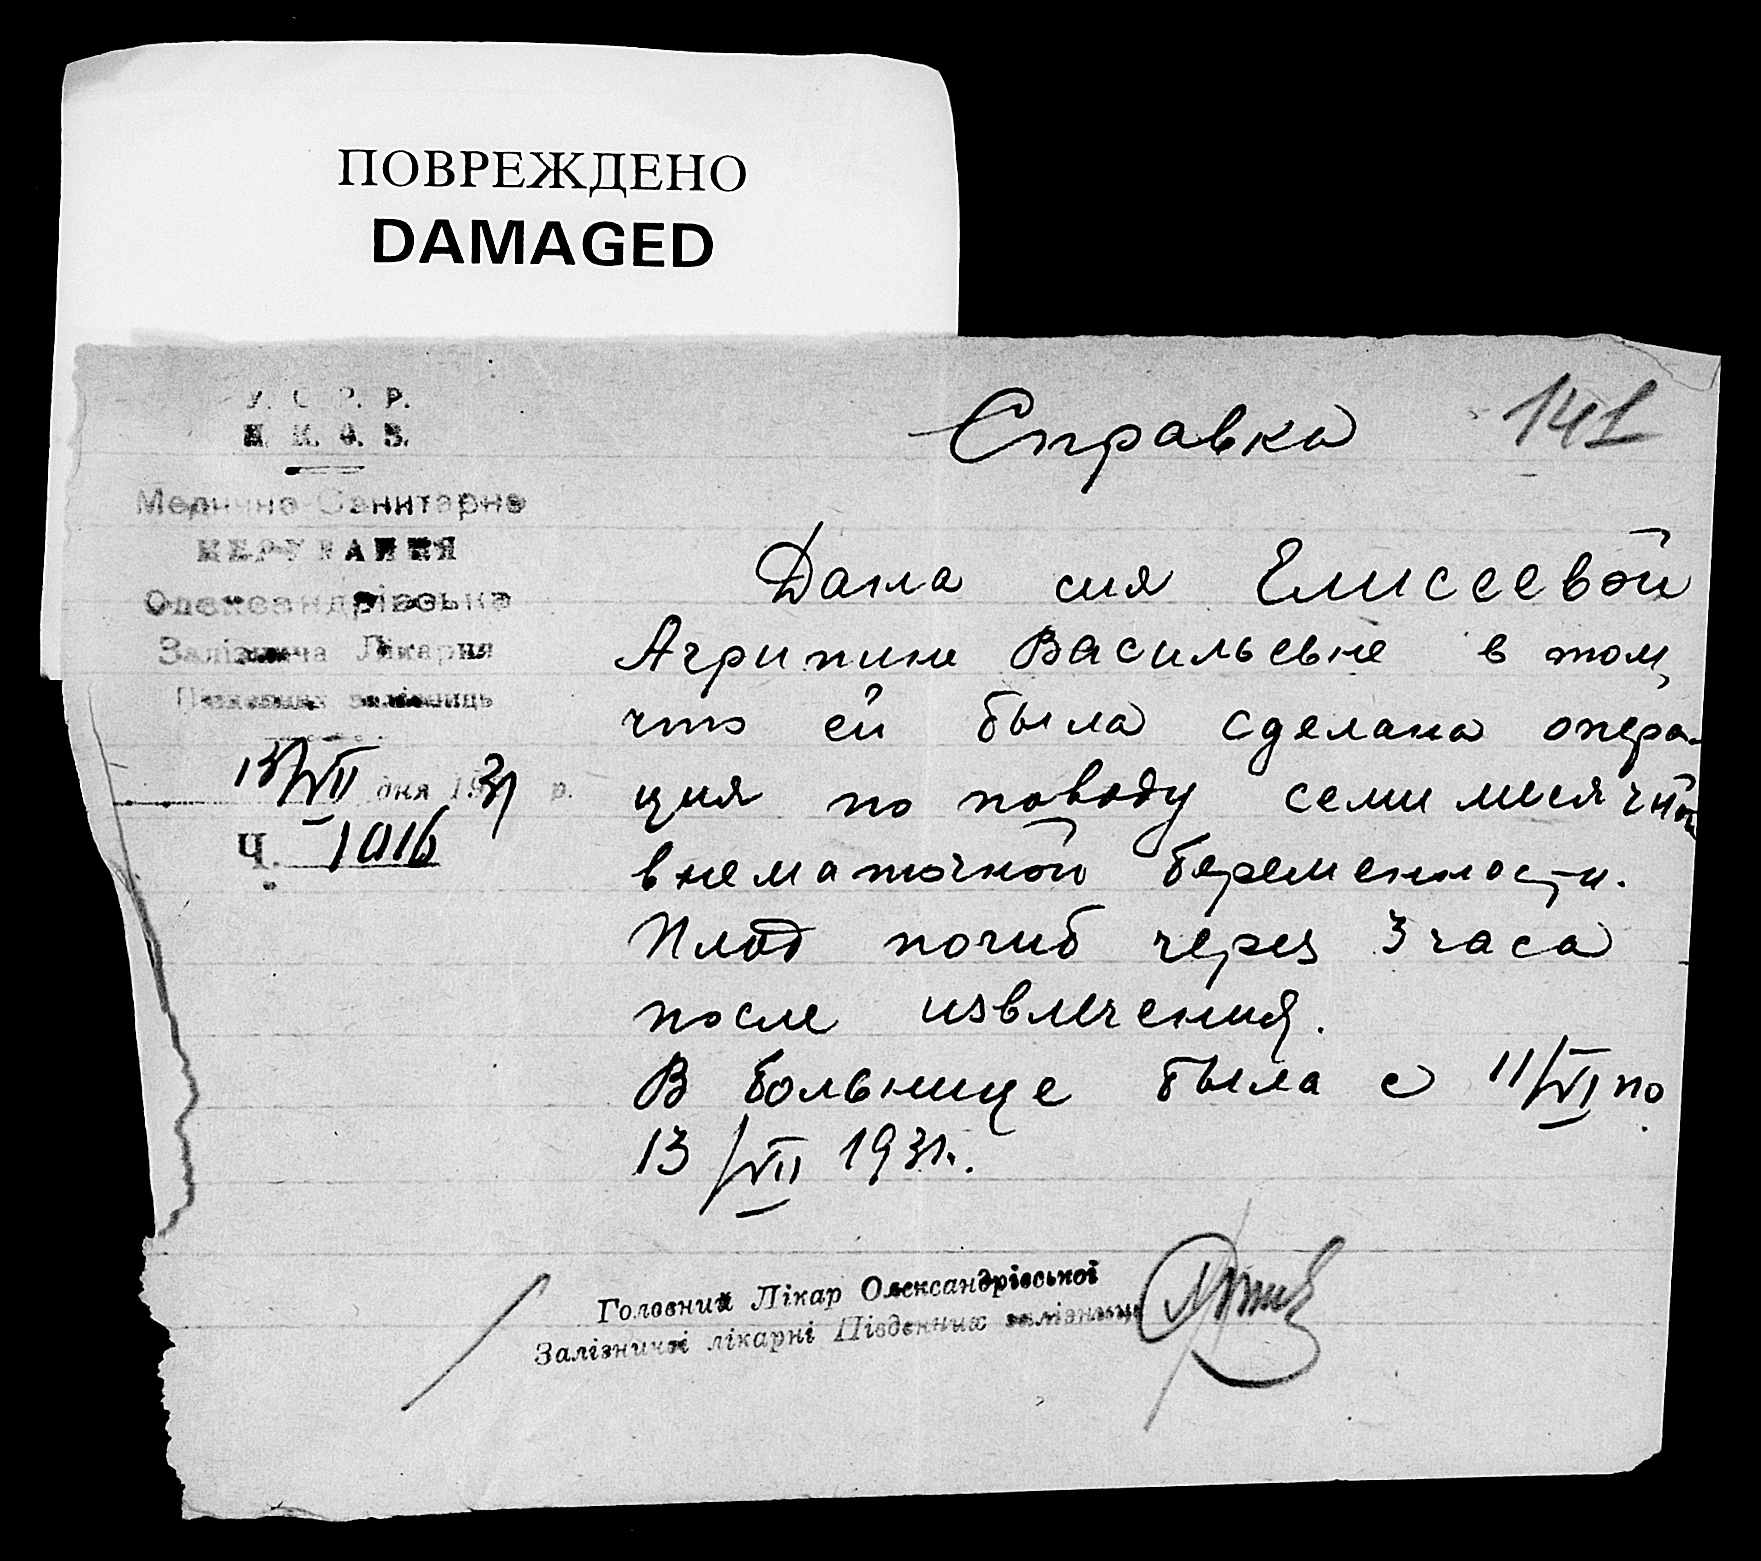 ПОВРЕЖДЕНО
DAMAGED
У. С. Р. Р.
Н. К. О. З.
Медично-Санитарне
КЕРУВАННЯ
Олександрівська
Залізнича Лікарня
Південних залізниць
13/VII дня 1931 р.
Ч. 1016
141
Справка
Дана сия Елисеевой
Агрипине Васильевне в том,
что ей была сделана опера-
ция по поводу семимесячной
внематочной беременности.
Плод погиб через 3 часа
после извлечения.
В больнице была с 11/VI по
13/VII 1931г.
Головний Лікар Олександрівської
Залізничої лікарні Південних залізниць